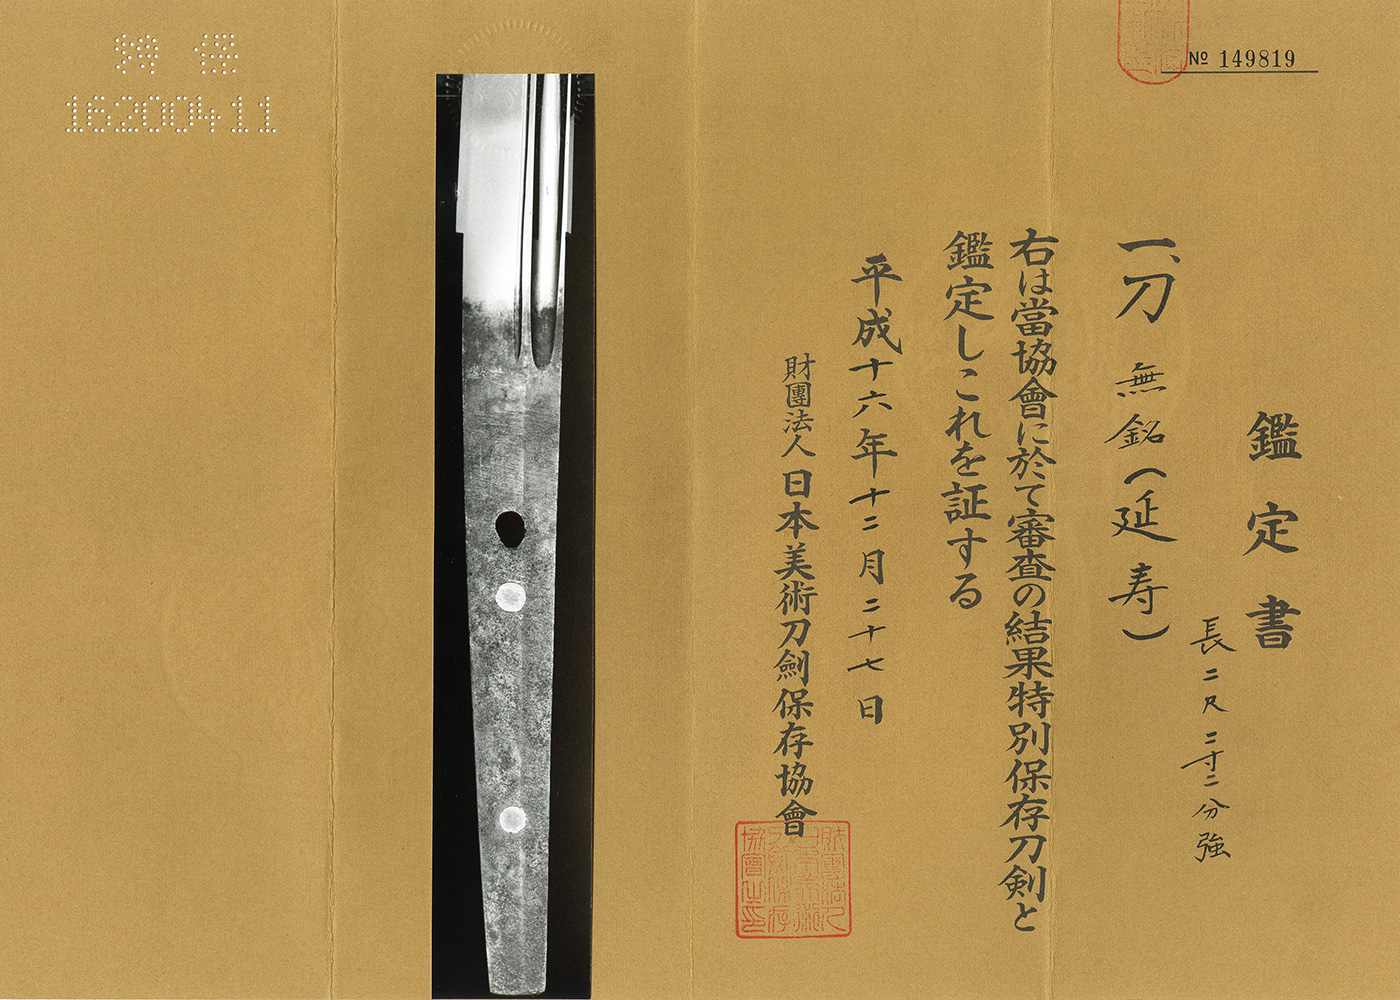 № 149819
鑑定書
長二尺二寸二分強
一、刀 無銘(延寿)
右は當協會に於て審査の結果特別保存刀剣と
鑑定しこれを証する
平成十六年十二月二十七日
財團法人 日本美術刀劍保存協會
財團法人日本美術刀劍保存協會之印
特保
16200411